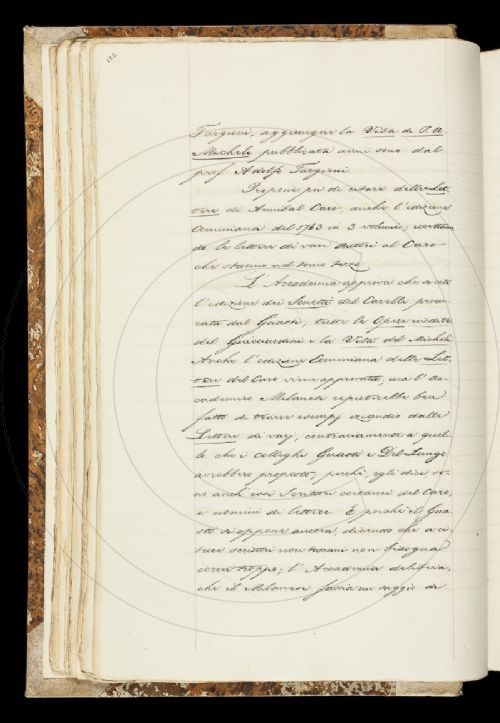 132
Targioni, aggiungere la Vita di P. A.
Micheli pubblicata anni sono dal
prof. Adolfo Targioni.
Propone poi di citare delle Let-
tere di Annibal Caro, anche l'edizione
Cominiana del 1763 in 3 volumi, eccettuan-
do le lettere di vari autori al Caro
che stanno nel tomo terzo.
L'Accademia approva che si citi
l'edizione dei Sonetti del Carella procu-
rata dal Guasti, tutte le Opere inedite
del Guicciardini e la Vita del Micheli.
Anche l'edizione Cominiana delle Let-
tere del Caro viene approvata, ma l'Ac-
cademico Milanesi reputerebbe ben
fatto di trarre esempj eziandio dalle
Lettere di varj, contrariamente a quel-
lo che i colleghi Guasti e Del Lungo
avrebbero proposto, perchè, egli dice so-
no anch'essi Scrittori coetanei del Caro,
e uomini di lettere. E perchè il Gua-
sti si oppone ancora, dicendo che a ci-
tare scrittori non toscani non bisogna
correr troppo; l'Accademia delibera,
che il Milanesi faccia un saggio di